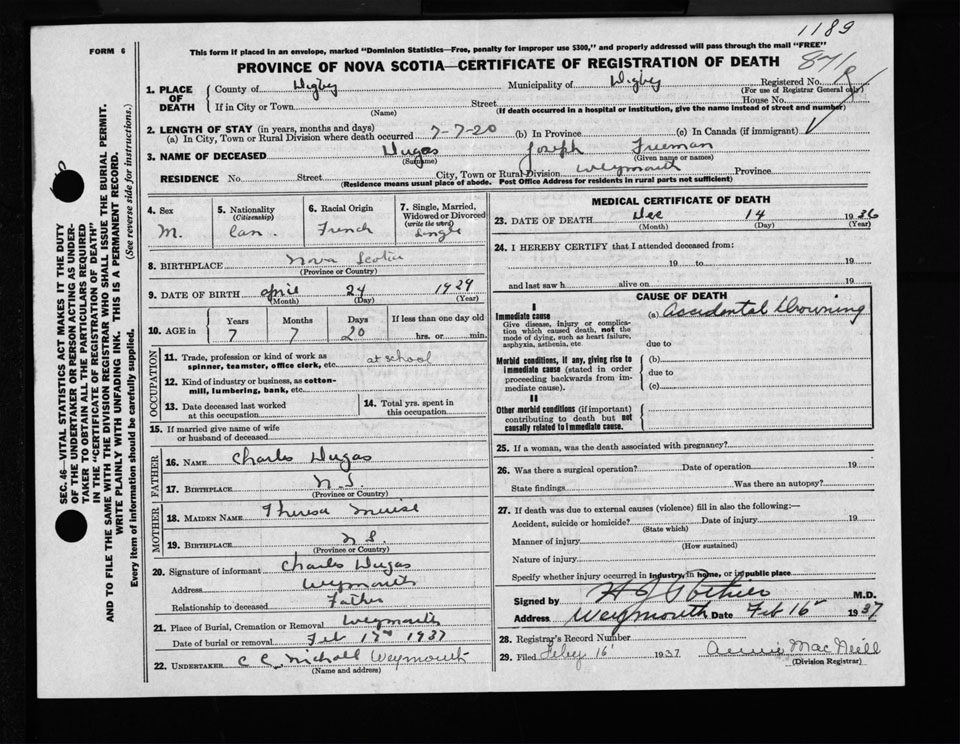 1189
FORM 6
This form if placed in an envelope, marked "Dominion Statistics—Free, penalty for improper use $300," and properly addressed will pass through the mail "FREE"
PROVINCE OF NOVA SCOTIA—CERTIFICATE OF REGISTRATION OF DEATH
1. PLACE OF DEATH
County of Digby Municipality of Digby Registered No.
(For use of Registrar General only)
If in City or Town Street House No.
(Name) (If death occurred in a hospital or institution, give the name instead of street and number)
2. LENGTH OF STAY (in years, months and days)
(a) In City, Town or Rural Division where death occurred 7-7-20 (b) In Province (c) In Canada (if immigrant)
3. NAME OF DECEASED Dugas Joseph Freeman
(Surname) (Given name or names)
RESIDENCE No. Street City, Town or Rural Division Weymouth Province
(Residence means usual place of abode. Post Office Address for residents in rural parts not sufficient)
SEC. 46—VITAL STATISTICS ACT MAKES IT THE DUTY
OF THE UNDERTAKER OR PERSON ACTING AS UNDER-
TAKER TO OBTAIN ALL THE PARTICULARS REQUIRED
IN THE "CERTIFICATE OF REGISTRATION OF DEATH"
AND TO FILE THE SAME WITH THE DIVISION REGISTRAR WHO SHALL ISSUE THE BURIAL PERMIT.
WRITE PLAINLY WITH UNFADING INK. THIS IS A PERMANENT RECORD.
Every item of information should be carefully supplied. (See reverse side for instructions.)
4. Sex
M.
5. Nationality
(Citizenship)
Can.
6. Racial Origin
French
7. Single, Married,
Widowed or Divorced
(write the word)
Single
8. BIRTHPLACE Nova Scotia
(Province or Country)
9. DATE OF BIRTH April 24 1929
(Month) (Day) (Year)
10. AGE in
Years Months Days If less than one day old
7 7 20 hrs. or min.
OCCUPATION
11. Trade, profession or kind of work as
spinner, teamster, office clerk, etc. at school
12. Kind of industry or business, as cotton-
mill, lumbering, bank, etc.
13. Date deceased last worked
at this occupation
14. Total yrs. spent in
this occupation
15. If married give name of wife
or husband of deceased
FATHER
16. NAME Charles Dugas
17. BIRTHPLACE N.S.
(Province or Country)
MOTHER
18. MAIDEN NAME Theresa Muise
19. BIRTHPLACE N S.
(Province or Country)
20. Signature of informant Charles Dugas
Address Weymouth
Relationship to deceased Father
21. Place of Burial, Cremation or Removal Weymouth
Date of burial or removal Feb 17th 1937
22. UNDERTAKER C C Nichall Weymouth
(Name and address)
MEDICAL CERTIFICATE OF DEATH
23. DATE OF DEATH Dec 14 1936
(Month) (Day) (Year)
24. I HEREBY CERTIFY that I attended deceased from:
19 to 19
and last saw h alive on 19
CAUSE OF DEATH
I
Immediate cause (a) Accidental Drowning
Give disease, injury or complica-
tion which caused death, not the
mode of dying, such as heart failure,
asphyxia, asthenia, etc. due to
Morbid conditions, if any, giving rise to
immediate cause (stated in order
proceeding backwards from im-
mediate cause).
(b)
due to
(c)
II
Other morbid conditions (if important)
contributing to death but not
causally related to immediate cause.
25. If a woman, was the death associated with pregnancy?
26. Was there a surgical operation? Date of operation 19
State findings Was there an autopsy?
27. If death was due to external causes (violence) fill in also the following:—
Accident, suicide or homicide? Date of injury 19
(State which)
Manner of injury
(How sustained)
Nature of injury
Specify whether injury occurred in Industry, in home, or in public place
Signed by H J Pothier M.D.
Address Weymouth Date Feb 16 1937
28. Registrar's Record Number
29. Filed Feby 16 1937. Annie MacNeill
(Division Registrar)